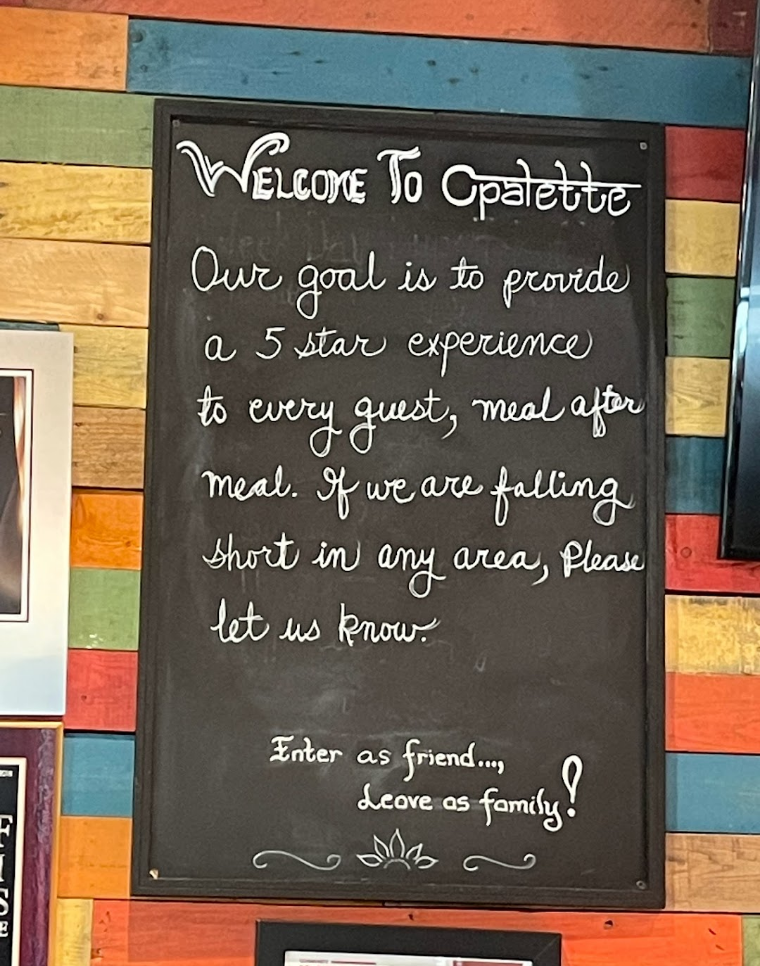 WELCOME TO Cpalette
Our goal is to provide
a 5 star experience
to every guest, meal after
meal. If we are falling
short in any area, Please
let us know.
Enter as friend...,
Leave as family!